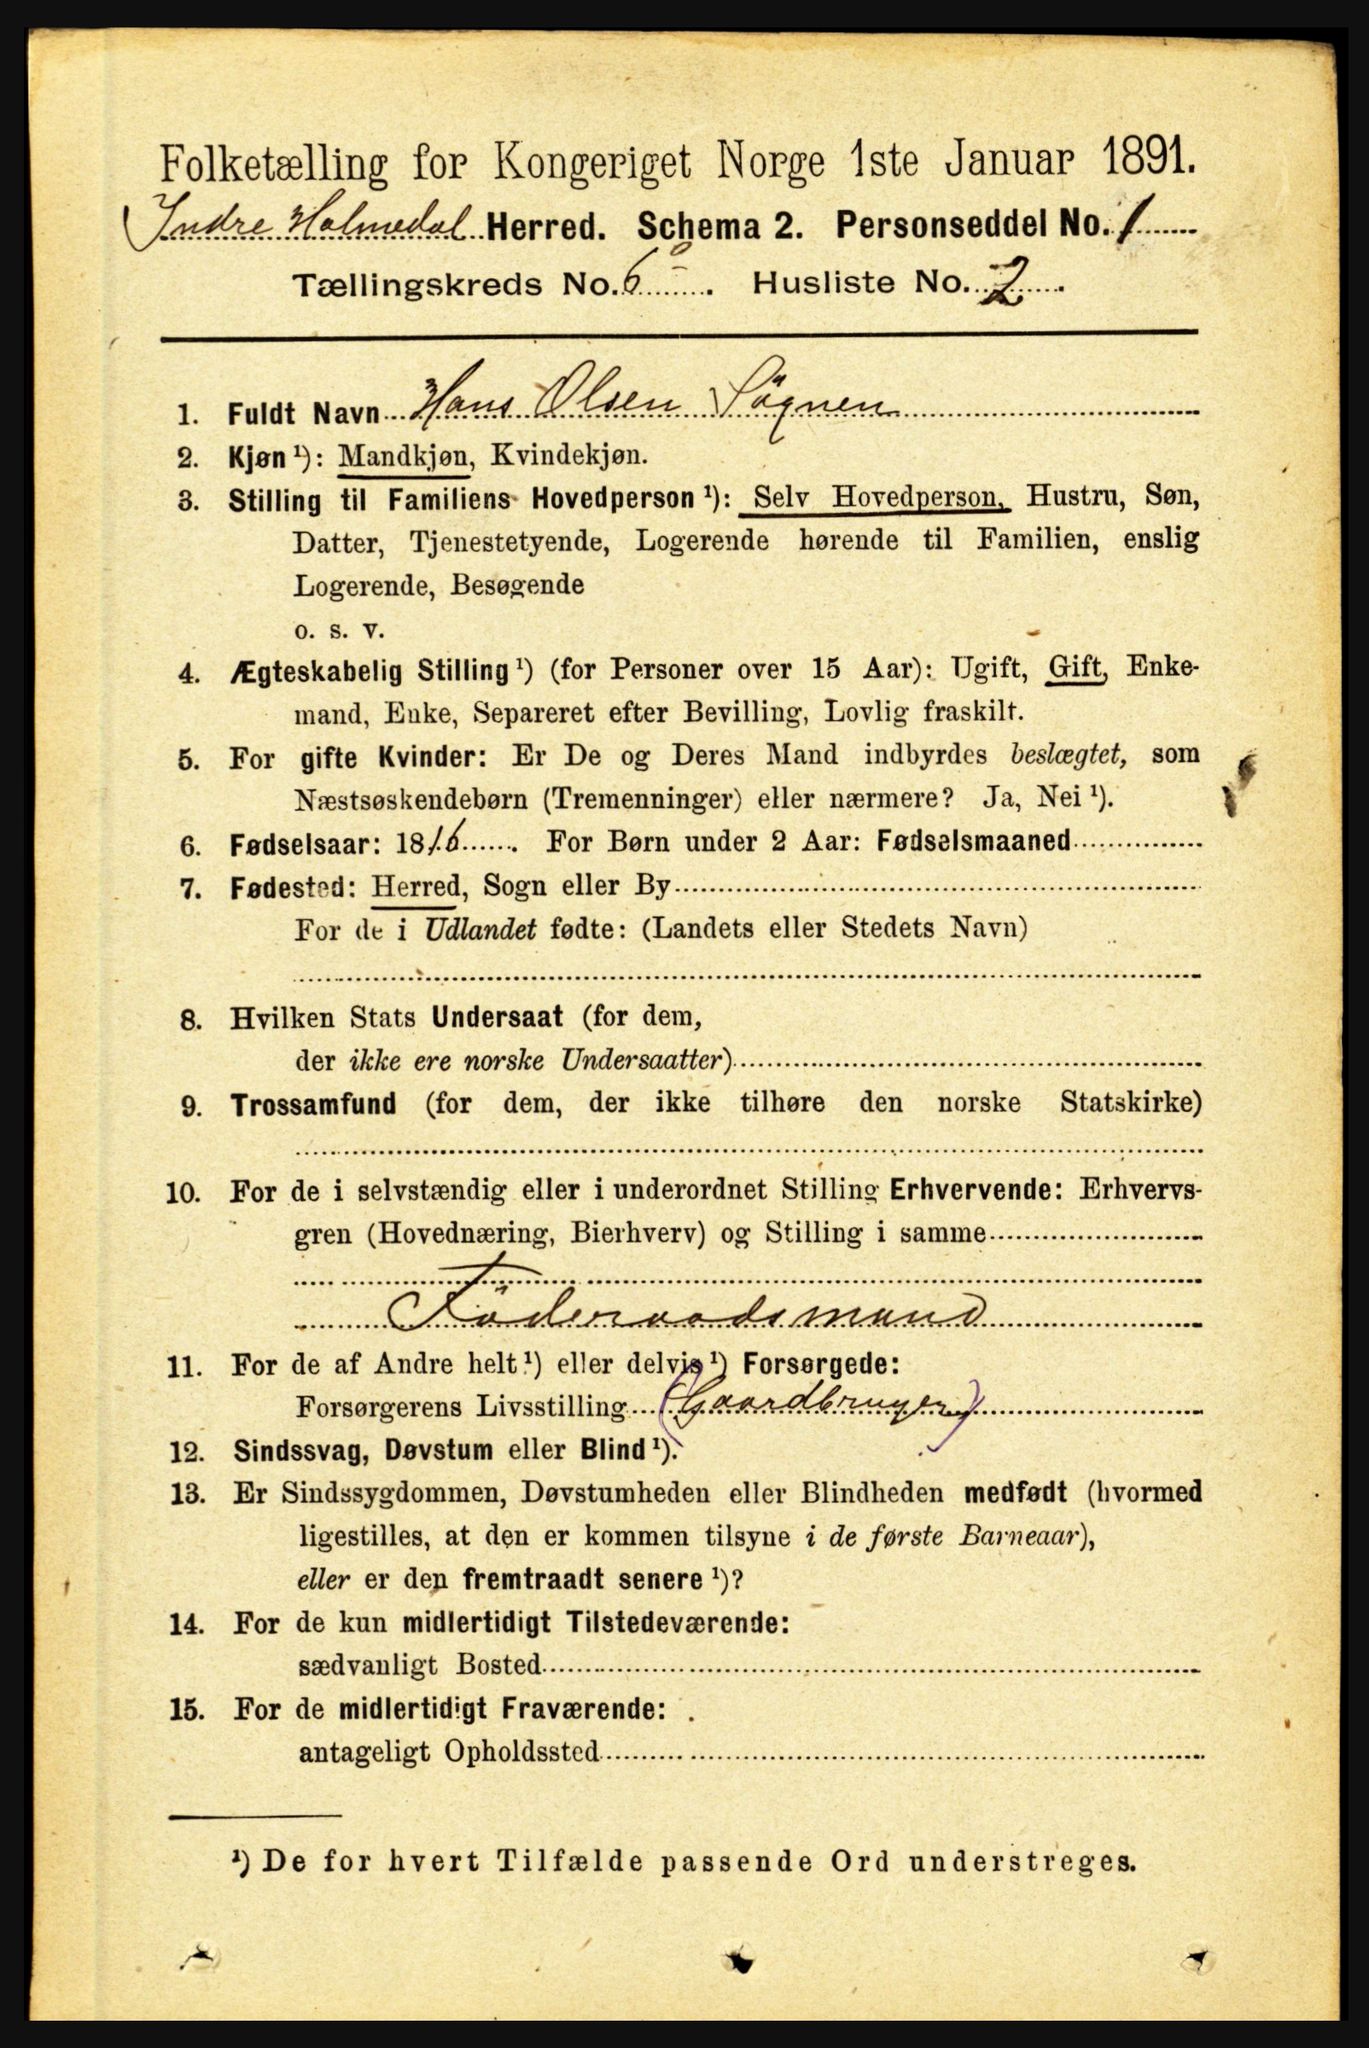 Folketælling for Kongeriget Norge 1ste Januar 1891.
Indre Holmedal Herred. Schema 2. Personseddel No. 1
Tællingskreds No. 6. Husliste No. 2.
1. Fuldt Navn Hans Olsen Sögnen
2. Kjøn ¹): Mandkjøn, Kvindekjøn.
3. Stilling til Familiens Hovedperson ¹): Selv Hovedperson, Hustru, Søn,
Datter, Tjenestetyende, Logerende hørende til Familien, enslig
Logerende, Besøgende
o. s. v.
4. Ægteskabelig Stilling ¹) (for Personer over 15 Aar): Ugift, Gift, Enke-
mand, Enke, Separeret efter Bevilling, Lovlig fraskilt.
5. For gifte Kvinder: Er De og Deres Mand indbyrdes beslægtet, som
Næstsøskendebørn (Tremenninger) eller nærmere? Ja, Nei ¹).
6. Fødselsaar: 1816. For Børn under 2 Aar: Fødselsmaaned
7. Fødested: Herred, Sogn eller By
For de i Udlandet fødte: (Landets eller Stedets Navn)
8. Hvilken Stats Undersaat (for dem,
der ikke ere norske Undersaatter)
9. Trossamfund (for dem, der ikke tilhøre den norske Statskirke)
10. For de i selvstændig eller i underordnet Stilling Erhvervende: Erhvervs-
gren (Hovednæring, Bierhverv) og Stilling i samme
Föderaadsmand
11. For de af Andre helt ¹) eller delvis ¹) Forsørgede:
Forsørgerens Livsstilling (Gaardbruger)
12. Sindssvag, Døvstum eller Blind ¹).
13. Er Sindssygdommen, Døvstumheden eller Blindheden medfødt (hvormed
ligestilles, at den er kommen tilsyne i de første Barneaar),
eller er den fremtraadt senere ¹)?
14. For de kun midlertidigt Tilstedeværende:
sædvanligt Bosted
15. For de midlertidigt Fraværende:
antageligt Opholdssted
¹) De for hvert Tilfælde passende Ord understreges.